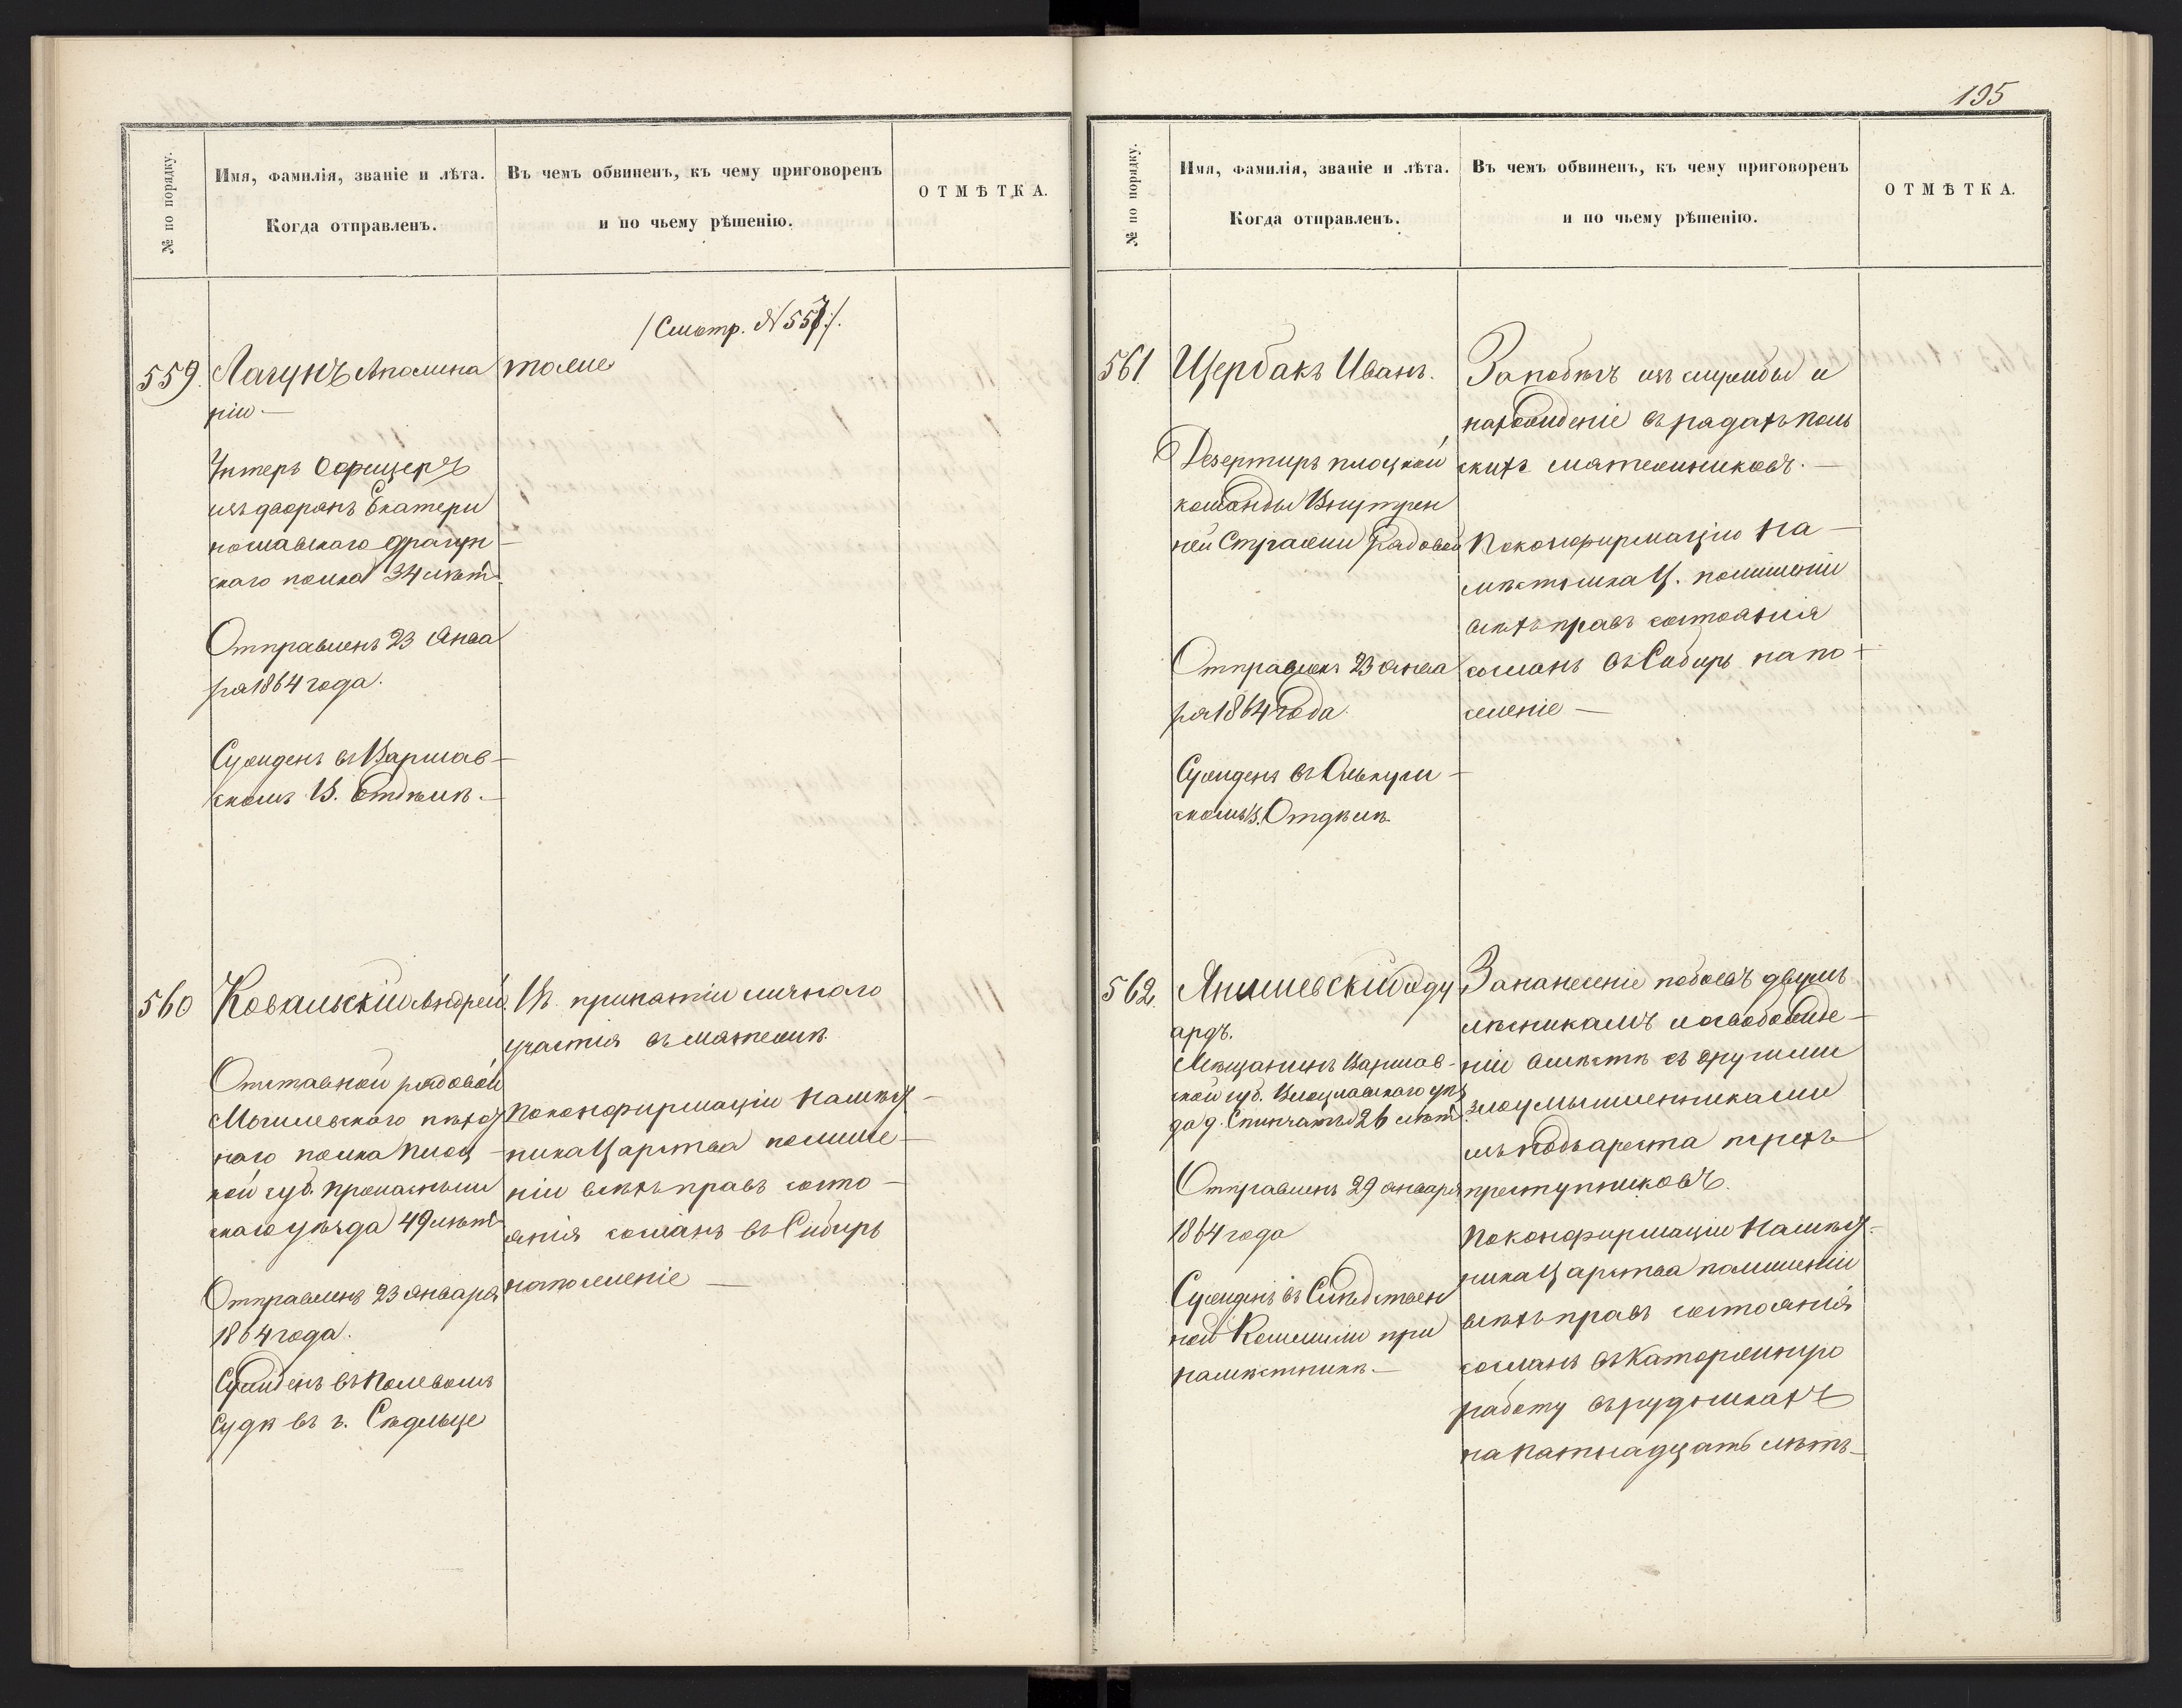 № по порядку.
Имя, фамилія, званіе и лѣта.
Когда отправленъ.
Въ чемъ обвиненъ, къ чему приговоренъ
и по чьему рѣшенію.
ОТМѢТКА.
/Смотр. № 557./.
559. Лагунъ Аполина
рій —
Унтеръ Офицеръ
изъ дворянъ Екатери
нославскаго драгун
скаго полка 34 лѣтъ
Отправленъ 23 Янва
ря 1864 года.
Сужденъ въ Варшав-
скомъ В. Отдѣлѣ. —
тоже
560 Ковальскій Андрей.
Отставной рядовой
Могилевскаго пѣхот
наго полка Плоц-
кой губ. Праснышь
скаго уѣзда 49 лѣтъ
Отправленъ 23 января
1864 года.
Сужденъ въ Полевомъ
Судѣ въ г. Сѣдльце
Въ принятіи личнаго
участія въ мятежѣ.
По конфирмаціи Намѣст-
ника Царства по лише-
ніи всѣхъ правъ состо-
янія сосланъ въ Сибирь
на поселеніе —
195
№ по порядку.
Имя, фамилія, званіе и лѣта.
Когда отправленъ.
Въ чемъ обвиненъ, къ чему приговоренъ
и по чьему рѣшенію.
ОТМѢТКА.
561 Щербакъ Иванъ.
Дезертиръ плоцкой
команды Внутрен
ней Стражи Рядовой
Отправленъ 23 янва
ря 1864 года.
Сужденъ въ Олькуш-
скомъ В. Отдѣлѣ.
За побѣгъ изъ службы и
нахожденіе въ рядахъ поль
скихъ мятежниковъ. —
По конфирмацію На-
мѣстника Ц. по лишеніи
всѣхъ правъ состоянія
сосланъ въ Сибирь на по-
селеніе —
562. Янишевскій Эду
ардъ.
Мѣщанинъ Варшав-
ской губ. Влоцлавскаго уѣз
да д. 26 лѣтъ.
Отправленъ 29 января
1864 года
Сужденъ въ Слѣдствен
ной Коммисіи при
Намѣстникѣ. —
За нанесеніе побоевъ двумъ
лѣсникамъ и освобожде-
ніи вмѣстѣ съ другими
злоумышленниками
изъ подъ ареста трехъ
преступниковъ.
По конфирмаціи Намѣст-
ника Царства по лишеніи
всѣхъ правъ состоянія
сосланъ въ каторжную
работу въ рудникахъ
на пятнадцать лѣтъ —